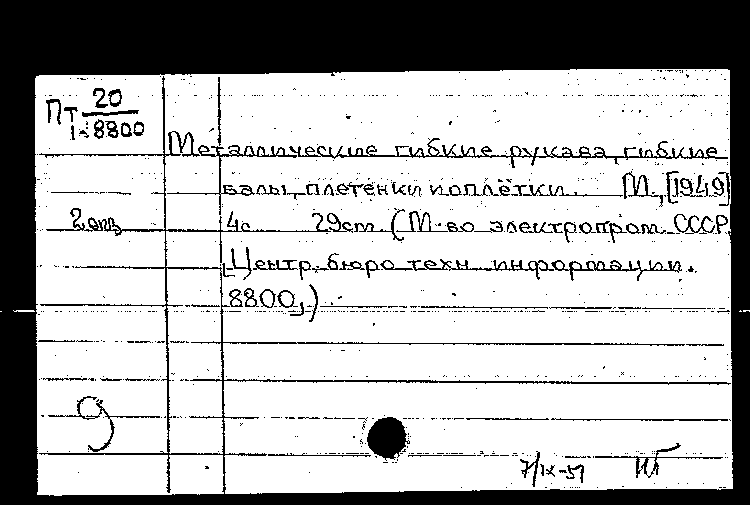 Пт 20
1-8800
Металлические гибкие рукава, гибкие
валы, плетенки и оплётки. М., [1949]
2 экз 4с. 29cm. (М-во электропром. СССР.
Центр. бюро техн. информации.
8800,)
9
7/IX-51